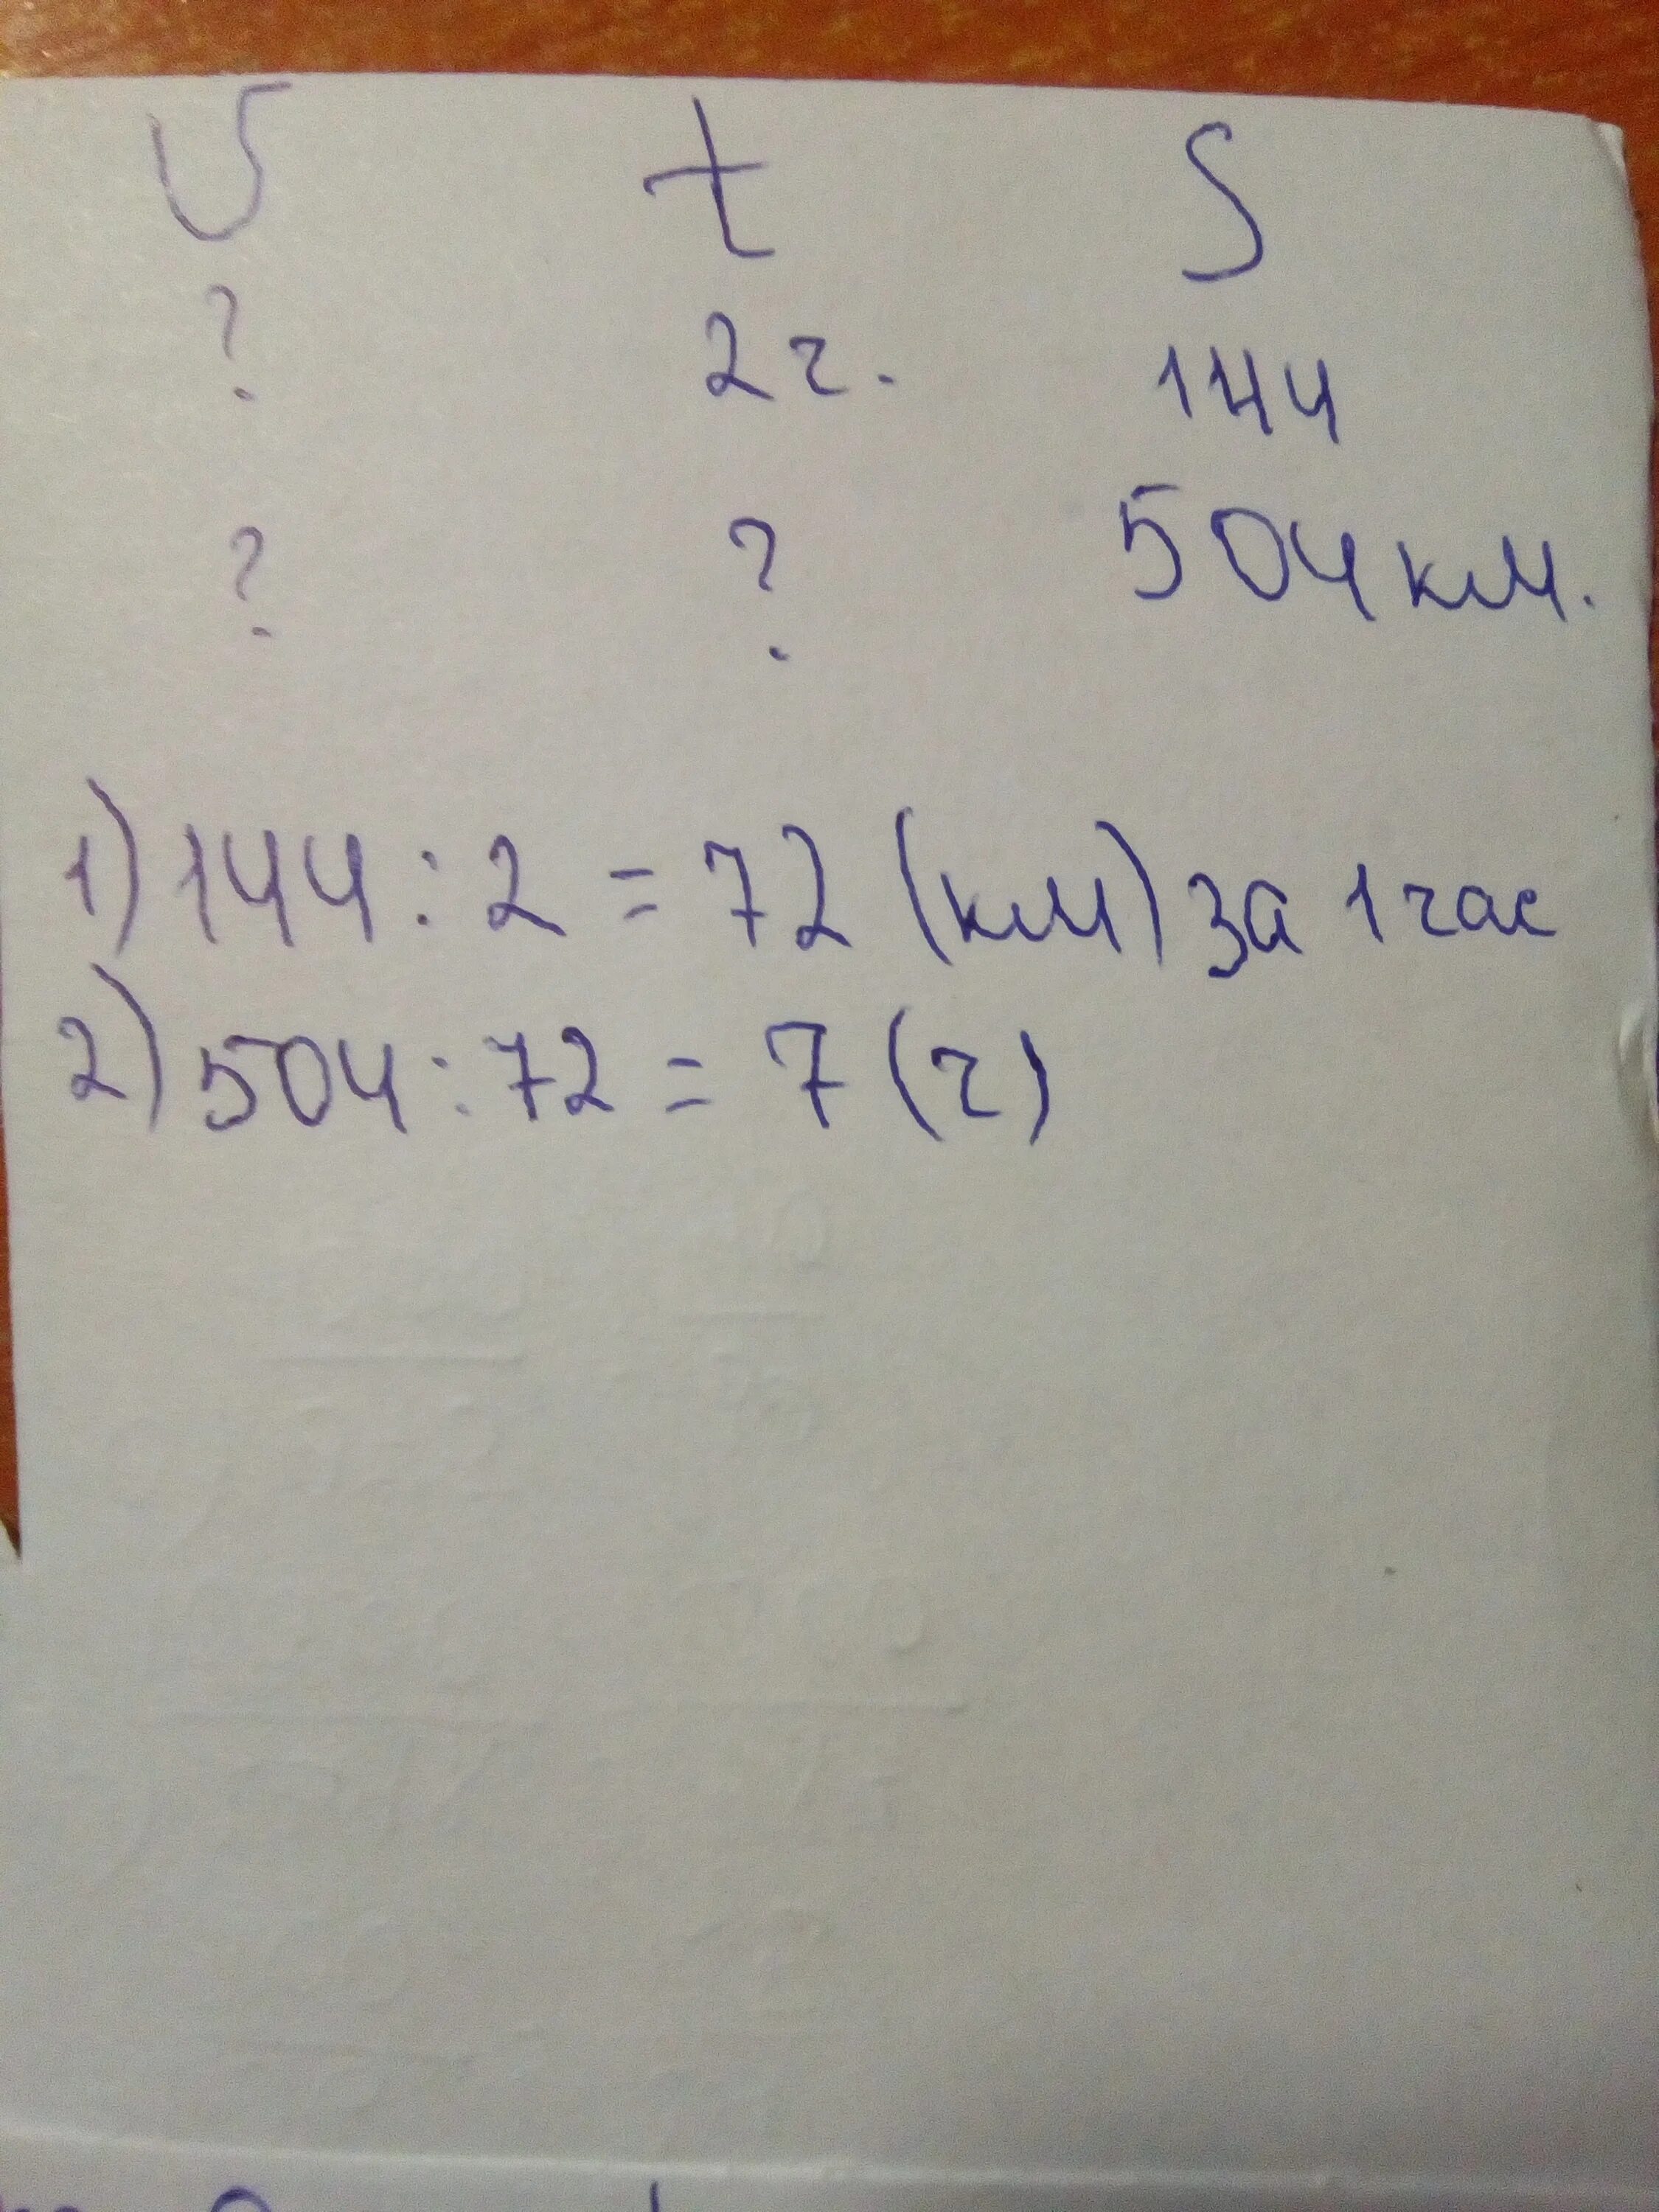 v t S
? 2 ч. 144
? ? 504 км.
1) 144 : 2 = 72 (км) за 1 час
2) 504 : 72 = 7 (ч)